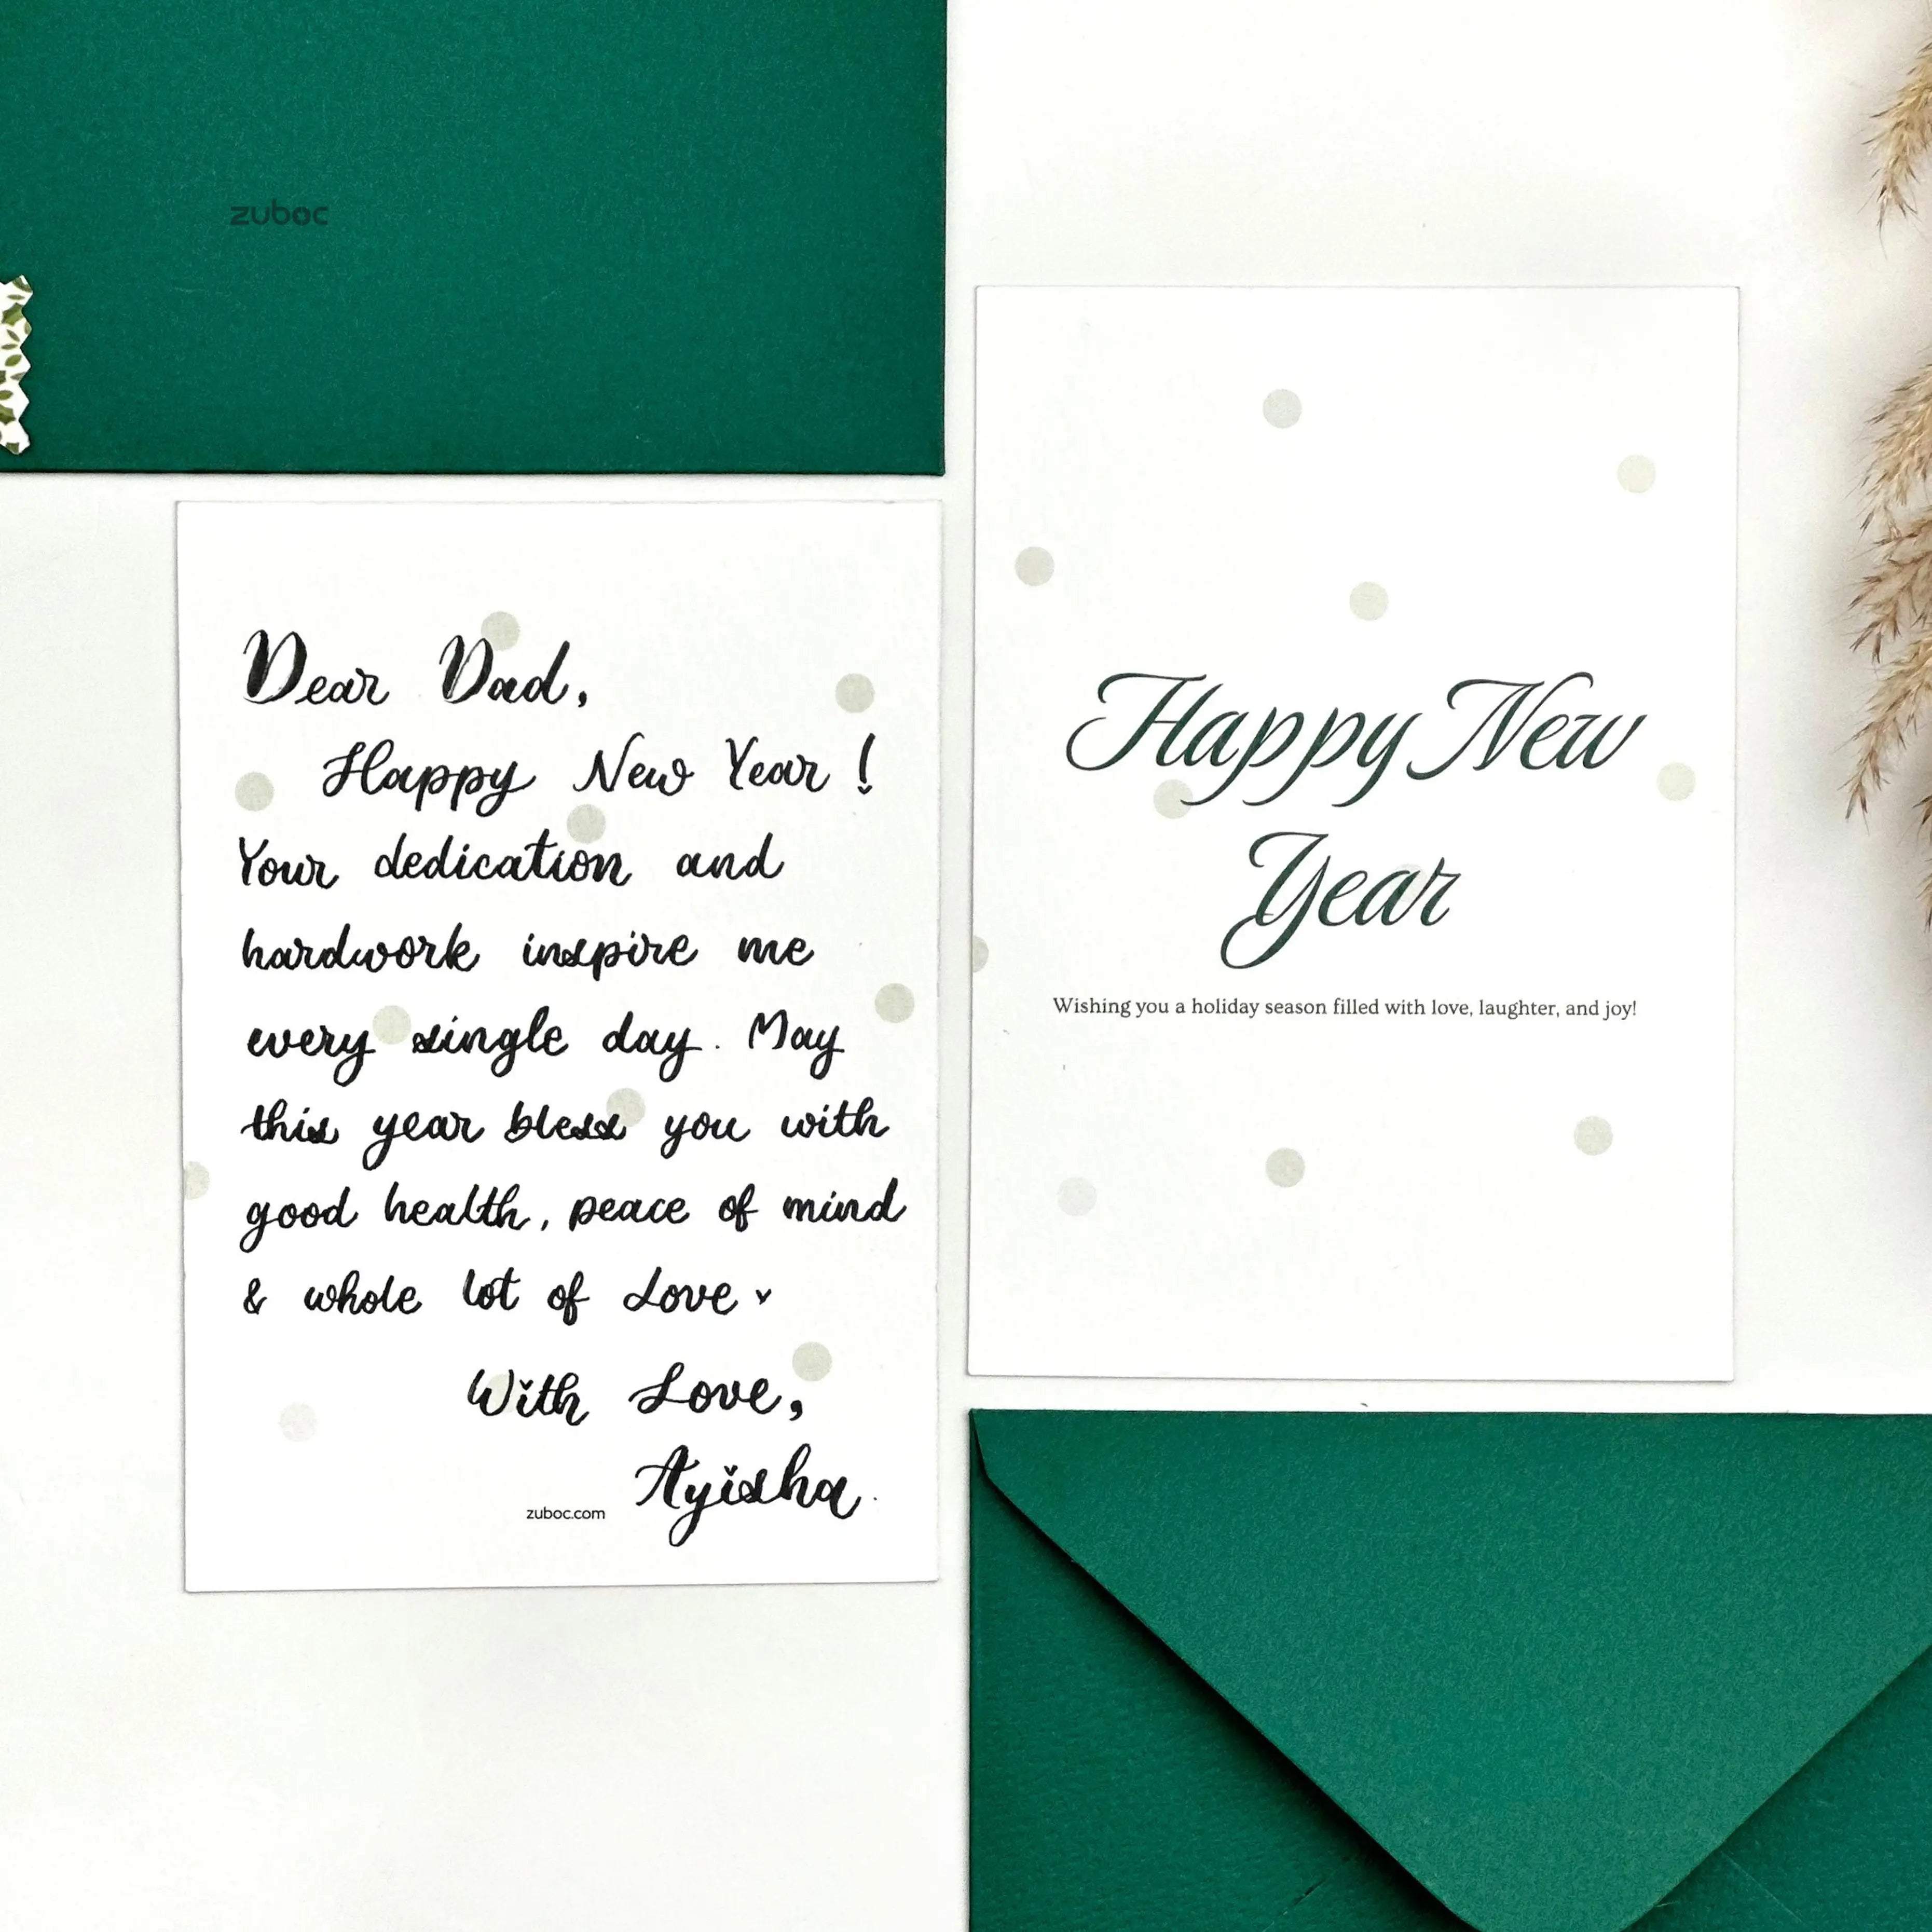 zuboc
Dear Dad,
Happy New Year !
Your dedication and
hardwork inspire me
every single day. May
this year bless you with
good health, peace of mind
& whole lot of Love
With Love,
Ayisha.
zuboc.com
Happy New
Year
Wishing you a holiday season filled with love, laughter, and joy!